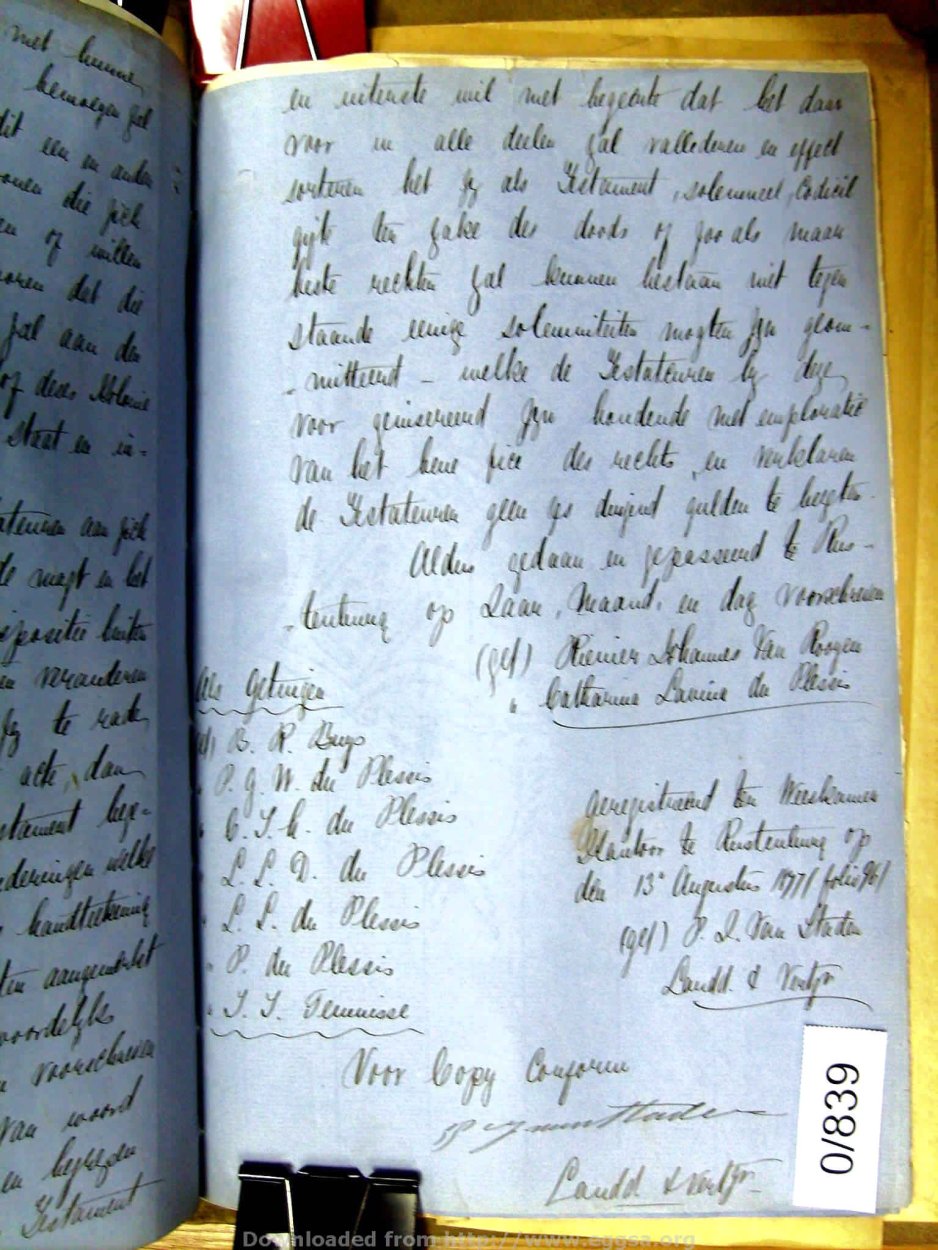 met hunne
bemoeijen zal
dit een en ander
die zich
of willen
dat die
zal aan den
of deser Kolonie
Staat en in=
aan zich
magt en het
buiten
en veranderen
te rade
acte, dan
welke
handteekening
woordelyks
voorschreven
Van woord
en
Testament
en uiterste wil met begeerte dat het daar
voor in alle deelen zal valledeeren en effect
sorteeren het zy als Testament, solemneel, Codicil
gift ter zake des doods of zoo als maar
beste rechten zal kunnen bestaan niet tegen
staande eenige solemniteiten mogten zyn geom=
-mitteerd - welke de Testateuren by deze
voor geinsereerd zyn houdende met emploratie
van het bene fice des rechts en verklaren
de Testateuren geen zes duizend gulden te bezitten.
Aldus gedaan en gepasseerd te Rus-
-tenburg op Jaar, Maand, en dag voorschreven
(get) Rienier Johannes Van Rooyen
" Catharina Lavina du Plessis
Als Getuigen
B. R. Buys
P. G. W. du Plessis
C. J. H. du Plessis
L. L. D. du Plessis
L. L. du Plessis
P. du Plessis
J. J. Teunisse
Geregistreerd ten Weeskamer
Kantoor te Rustenburg op
den 13e Augustus 1877/ folio 96/
(get) P. J. Van Staden
Landd. & Vertgr
Voor Copy Conform
P J van Staden
Landd & Vertgr
0/839
Downloaded from http://www.eggsa.org